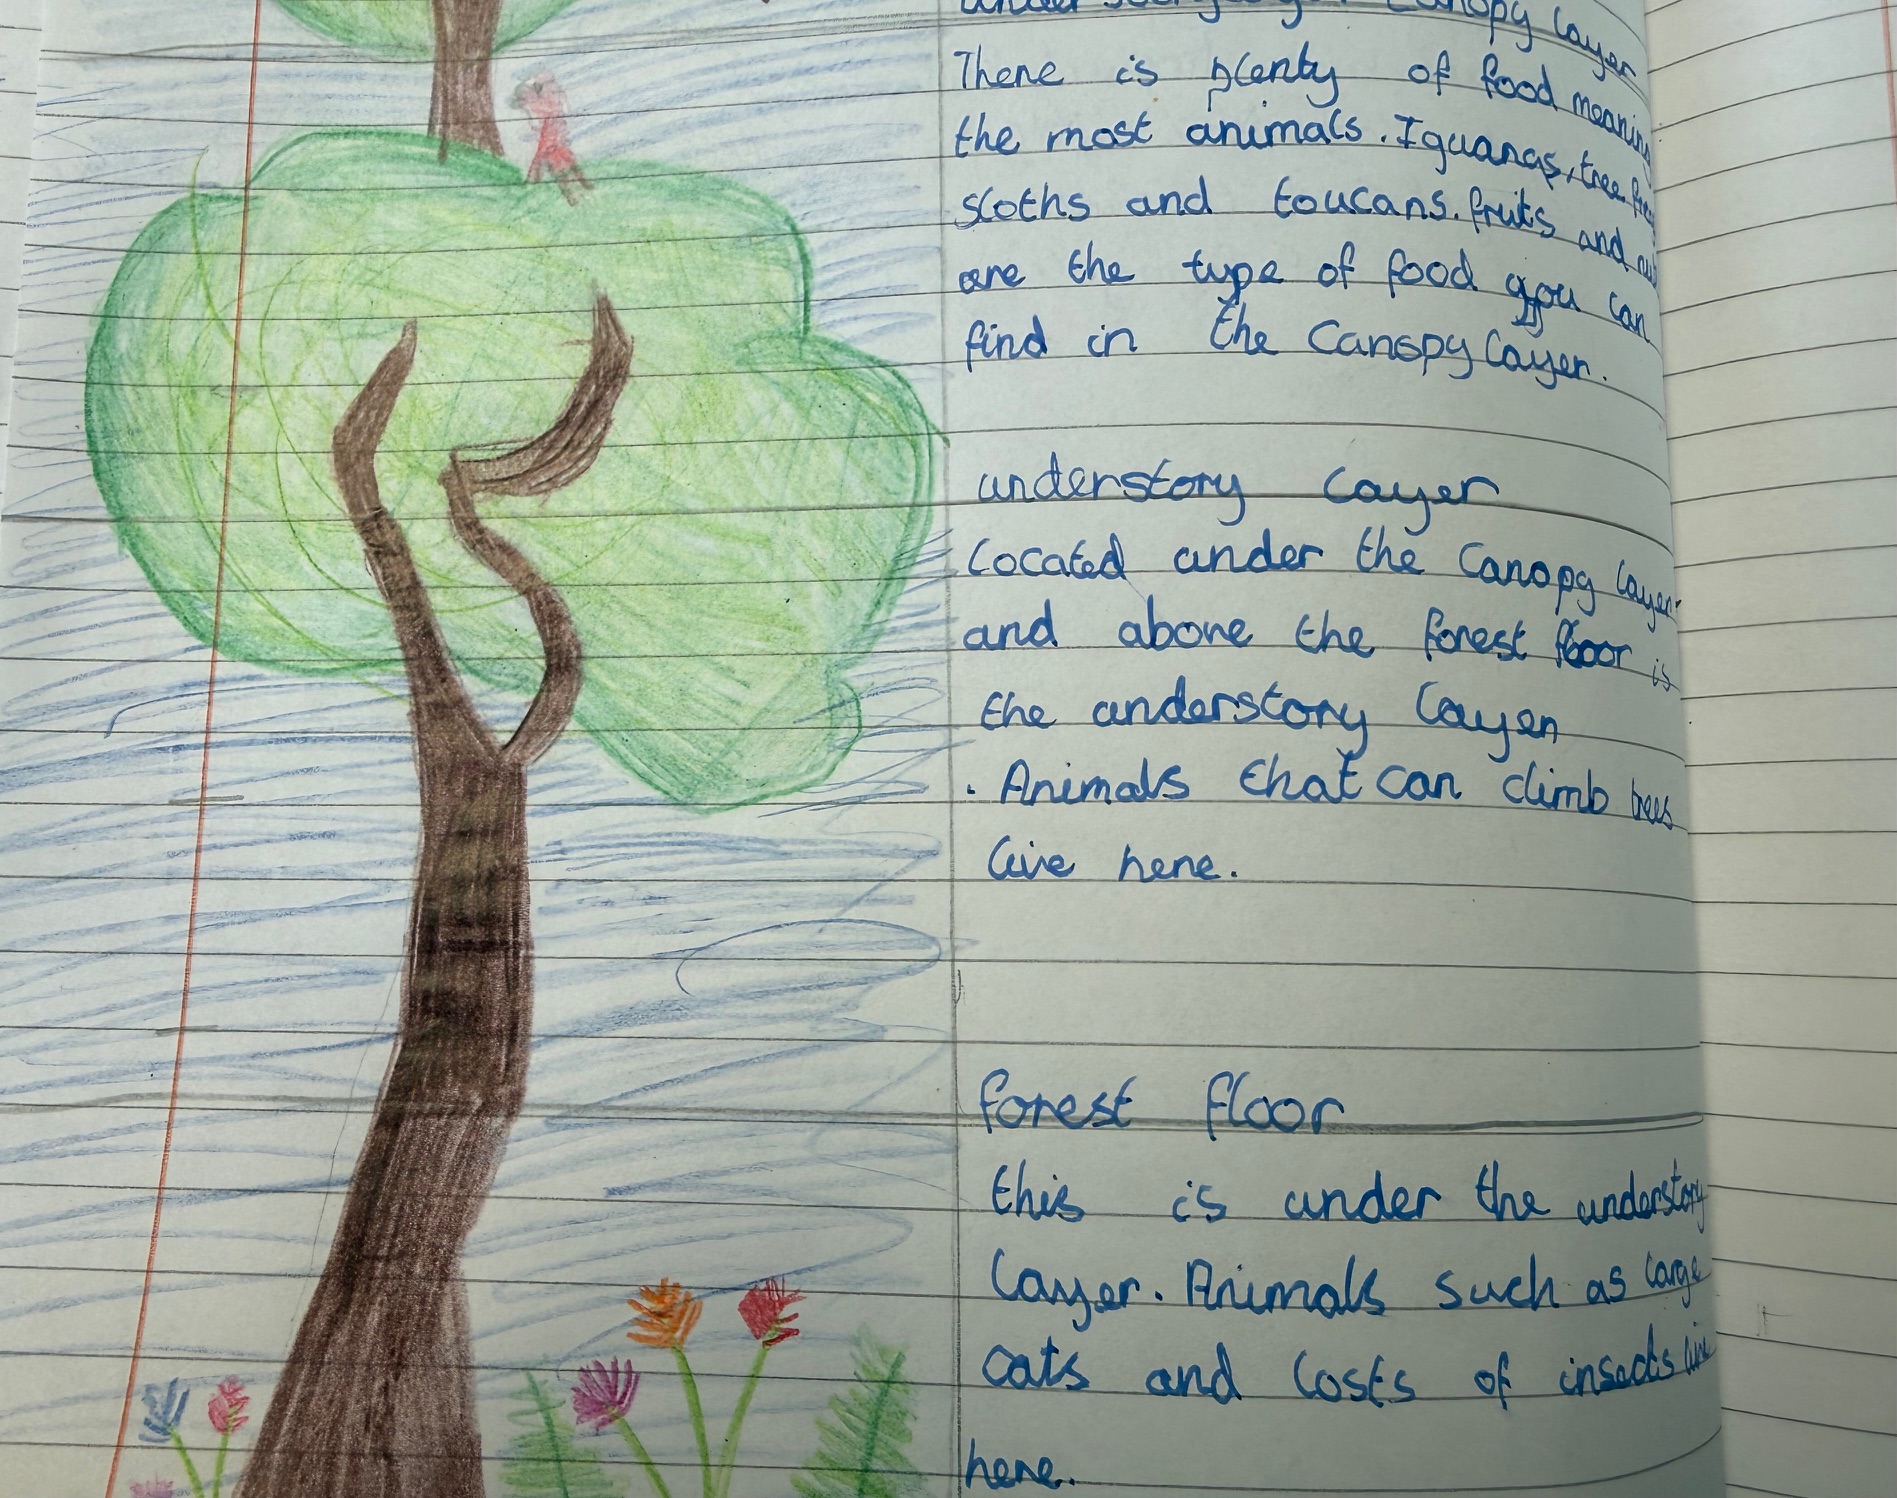 Canopy layer
There is plenty of food meaning
the most animals. Iguanas, tree
sloths and toucans. fruits and
are the type of food you can
find in the Canopy layer.
understory layer
located under the Canopy layer
and above the forest floor is
the understory layer
. Animals that can climb trees
live here.
forest floor
this is under the understory
layer. Animals such as large
cats and losts of insects live
here.